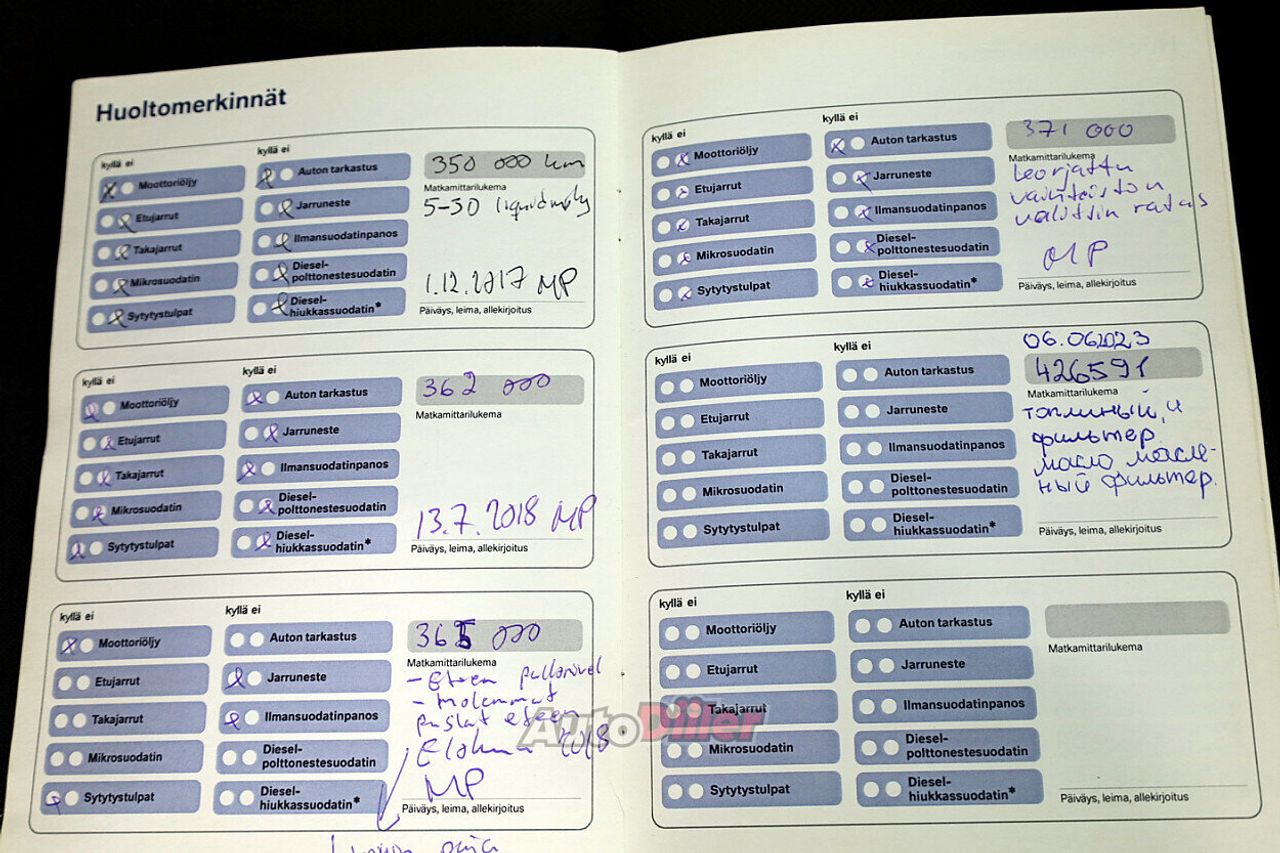 Huoltomerkinnät
kyllä ei
kyllä ei
Moottoriöljy
Auton tarkastus
350 000 km
Matkamittarilukema
Etujarrut
Jarruneste
5-30 liquid moly
Takajarrut
Ilmansuodatinpanos
Mikrosuodatin
Diesel-
polttonestesuodatin
1.12.2017 MP
Sytytystulpat
Diesel-
hiukkassuodatin*
Päiväys, leima, allekirjoitus
kyllä ei
kyllä ei
Moottoriöljy
Auton tarkastus
362 000
Matkamittarilukema
Etujarrut
Jarruneste
Takajarrut
Ilmansuodatinpanos
Mikrosuodatin
Diesel-
polttonestesuodatin
13.7.2018 MP
Sytytystulpat
Diesel-
hiukkassuodatin*
Päiväys, leima, allekirjoitus
kyllä ei
kyllä ei
Moottoriöljy
Auton tarkastus
365 000
Matkamittarilukema
Etujarrut
Jarruneste
- Eteen
- Molemmat
Takajarrut
Ilmansuodatinpanos
puslat eteen
Mikrosuodatin
Diesel-
polttonestesuodatin
Elokuu 2018
MP
Sytytystulpat
Diesel-
hiukkassuodatin*
Päiväys, leima, allekirjoitus
kyllä ei
kyllä ei
Moottoriöljy
Auton tarkastus
371 000
Matkamittarilukema
Etujarrut
Jarruneste
korjattu
vaihteiston
valitsin ratas
Takajarrut
Ilmansuodatinpanos
Mikrosuodatin
Diesel-
polttonestesuodatin
MP
Sytytystulpat
Diesel-
hiukkassuodatin*
Päiväys, leima, allekirjoitus
06.06.2023
kyllä ei
kyllä ei
Moottoriöljy
Auton tarkastus
426591
Matkamittarilukema
Etujarrut
Jarruneste
топлиный, и
фильтер
Takajarrut
Ilmansuodatinpanos
масло масле-
ный фильтер.
Mikrosuodatin
Diesel-
polttonestesuodatin
Sytytystulpat
Diesel-
hiukkassuodatin*
Päiväys, leima, allekirjoitus
kyllä ei
kyllä ei
Moottoriöljy
Auton tarkastus
Matkamittarilukema
Etujarrut
Jarruneste
Takajarrut
Ilmansuodatinpanos
Mikrosuodatin
Diesel-
polttonestesuodatin
Sytytystulpat
Diesel-
hiukkassuodatin*
Päiväys, leima, allekirjoitus
AutoDiiler